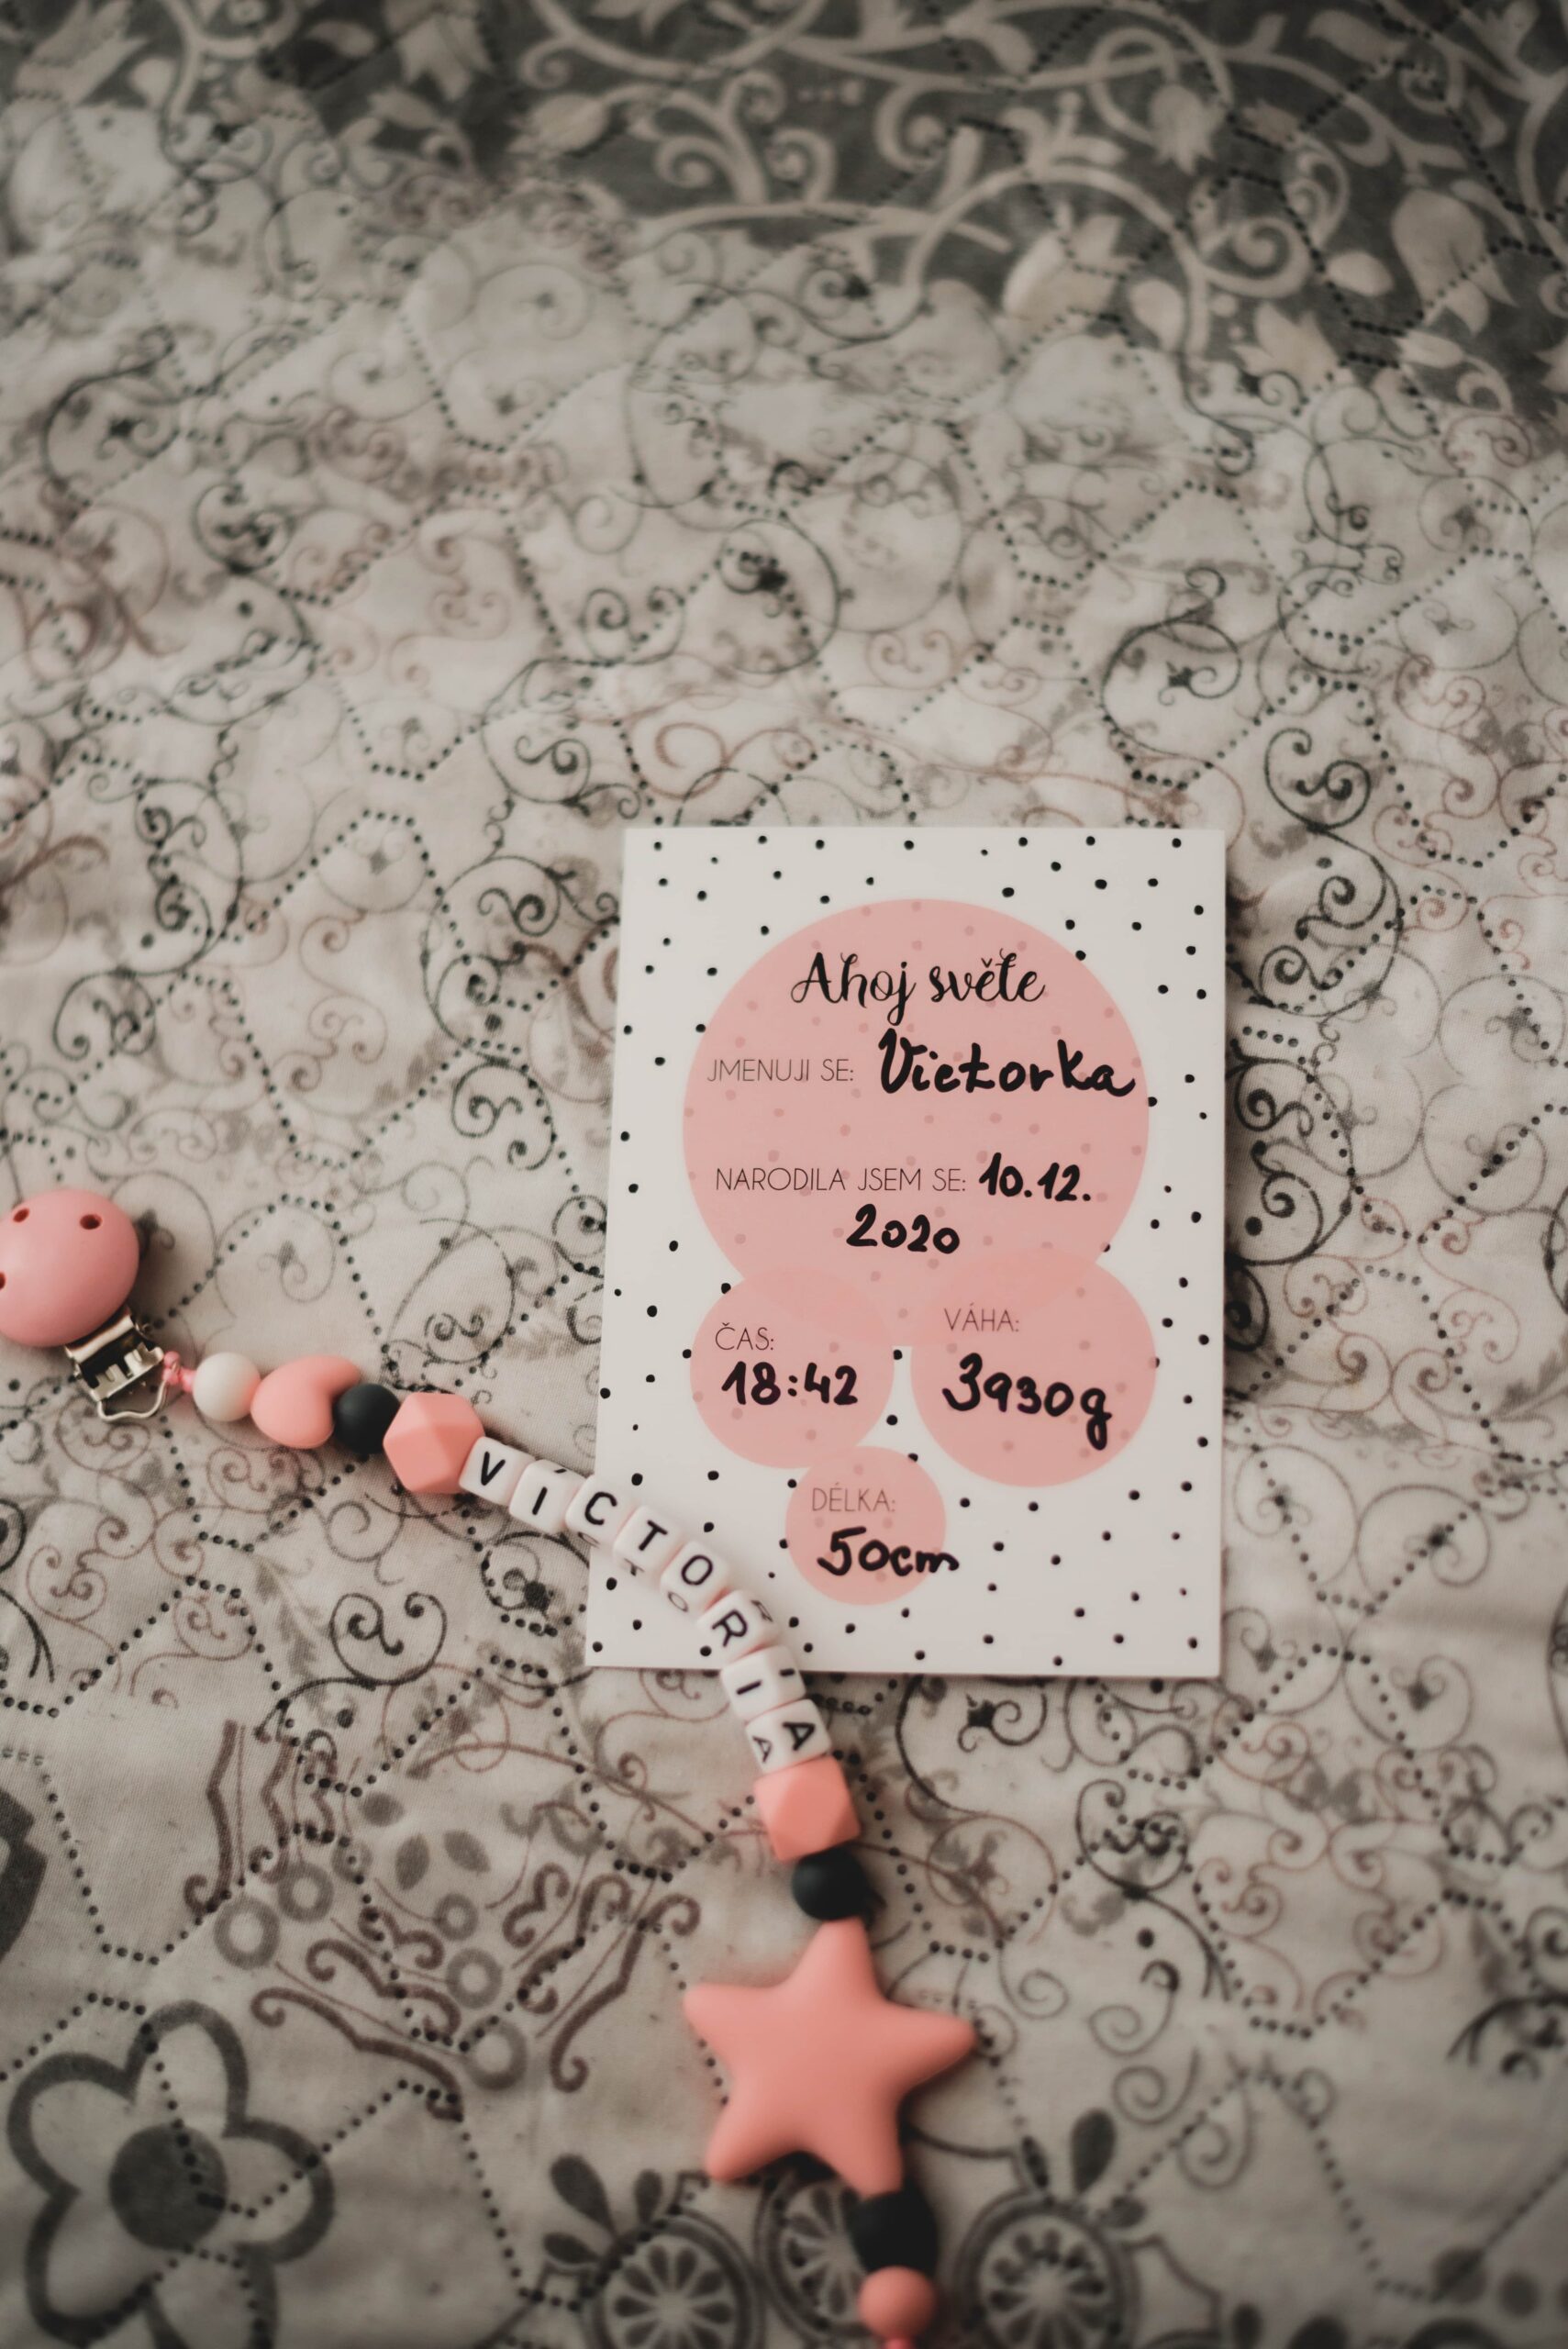 Ahoj světe
JMENUJI SE: Victorka
NARODILA JSEM SE: 10.12.
2020
ČAS:
18:42
VÁHA:
3930g
DÉLKA:
50cm
VÍCTORIA